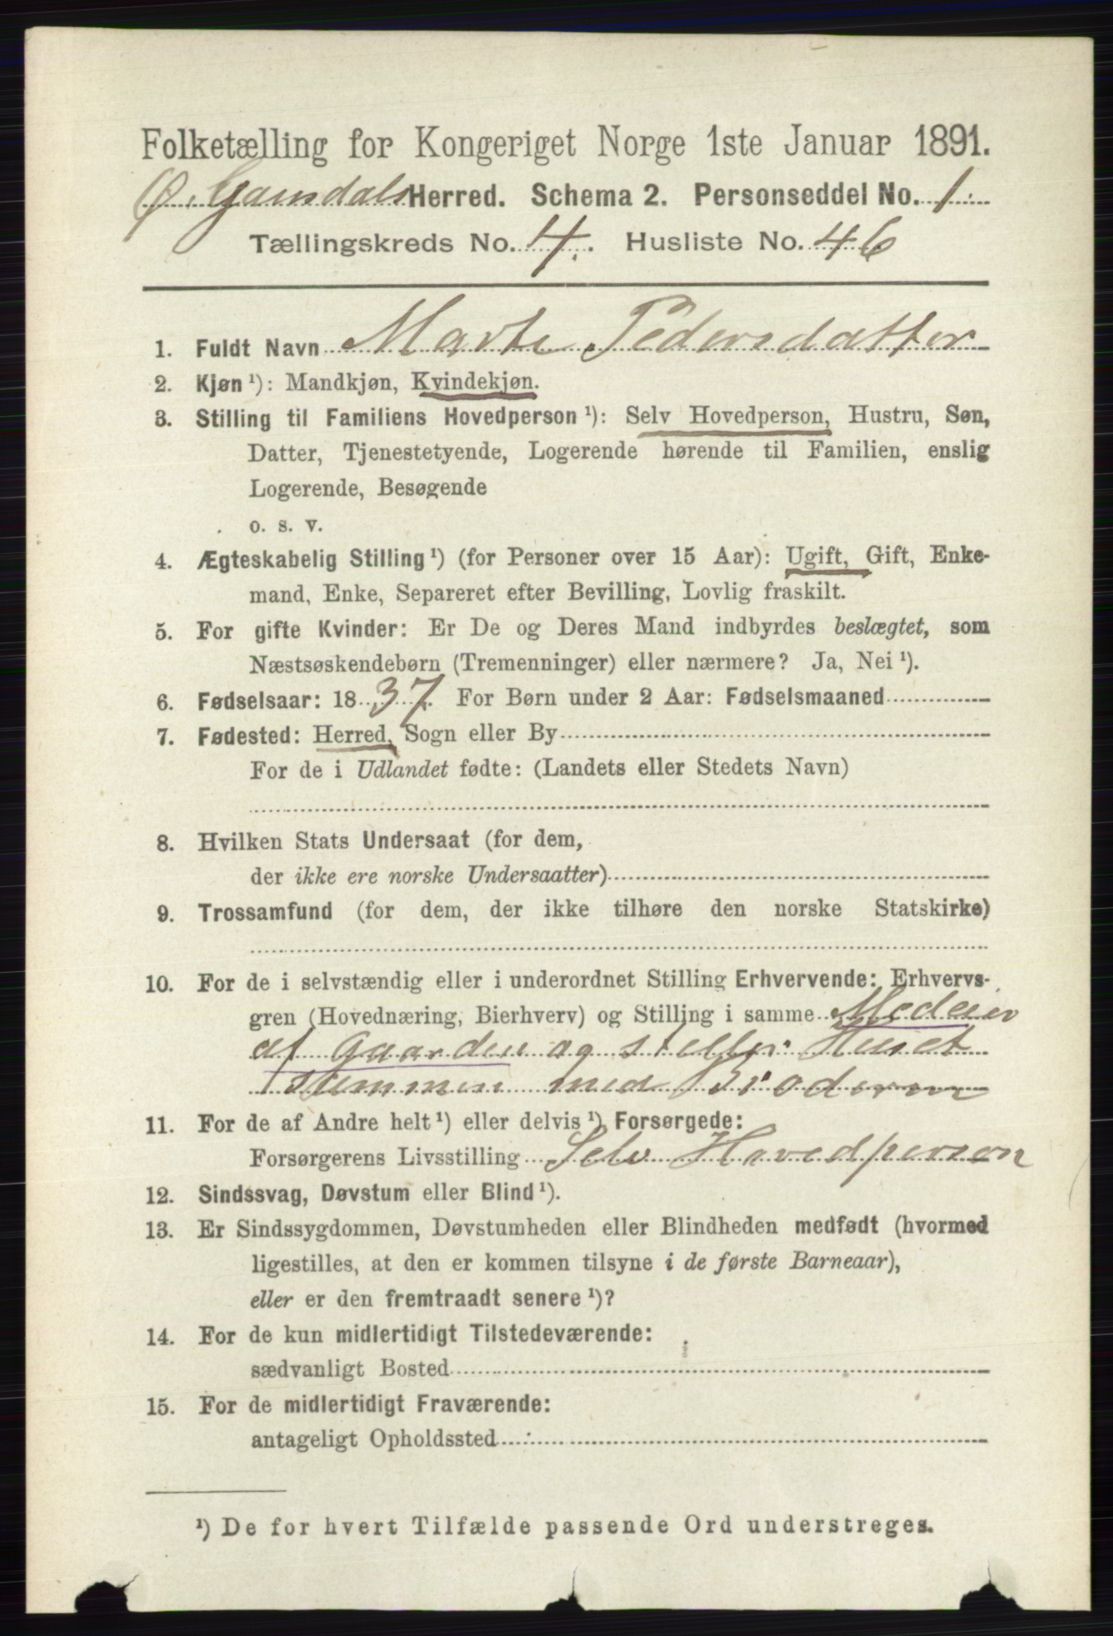 Folketælling for Kongeriget Norge 1ste Januar 1891.
Ø. Gausdals Herred. Schema 2. Personseddel No. 1.
Tællingskreds No. 4. Husliste No. 46
1. Fuldt Navn Marte Pedersdatter
2. Kjøn ¹): Mandkjøn, Kvindekjøn.
3. Stilling til Familiens Hovedperson ¹): Selv Hovedperson, Hustru, Søn,
Datter, Tjenestetyende, Logerende hørende til Familien, enslig
Logerende, Besøgende
o. s. v.
4. Ægteskabelig Stilling ¹) (for Personer over 15 Aar): Ugift, Gift, Enke-
mand, Enke, Separeret efter Bevilling, Lovlig fraskilt.
5. For gifte Kvinder: Er De og Deres Mand indbyrdes beslægtet, som
Næstsøskendebørn (Tremenninger) eller nærmere? Ja, Nei ¹).
6. Fødselsaar: 1837. For Børn under 2 Aar: Fødselsmaaned
7. Fødested: Herred, Sogn eller By
For de i Udlandet fødte: (Landets eller Stedets Navn)
8. Hvilken Stats Undersaat (for dem,
der ikke ere norske Undersaatter)
9. Trossamfund (for dem, der ikke tilhøre den norske Statskirke)
10. For de i selvstændig eller i underordnet Stilling Erhvervende: Erhvervs-
gren (Hovednæring, Bierhverv) og Stilling i samme Medeier
af Gaarden og steller Huset
summen med Broderen
11. For de af Andre helt ¹) eller delvis ¹) Forsørgede:
Forsørgerens Livsstilling Selv Hovedperson
12. Sindssvag, Døvstum eller Blind ¹).
13. Er Sindssygdommen, Døvstumheden eller Blindheden medfødt (hvormed
ligestilles, at den er kommen tilsyne i de første Barneaar),
eller er den fremtraadt senere ¹)?
14. For de kun midlertidigt Tilstedeværende:
sædvanligt Bosted
15. For de midlertidigt Fraværende:
antageligt Opholdssted
¹) De for hvert Tilfælde passende Ord understreges.